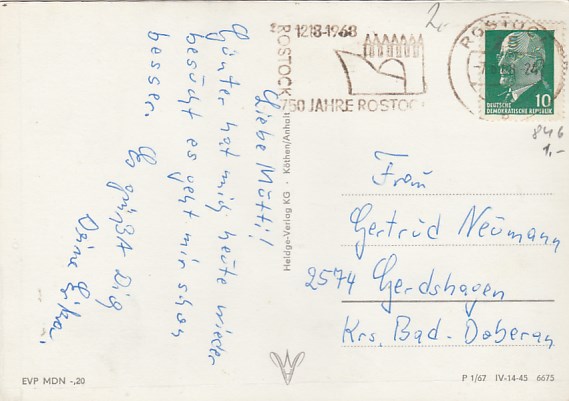 Liebe Mutti!
Günter hat mich heute wieder
besucht es geht mir schon
besser.
Es grüßt Dig
Deine Erika.
Heldge-Verlag KG · Köthen/Anhalt
1218-1968
ROSTOCK
750 JAHRE ROSTOC
ROSTOC
DEUTSCHE
DEMOKRATISCHE REPUBLIK
10
846
1,-
Frau
Gertrud Neumann
2574 Gerdshagen
Krs. Bad-Doberan
EVP MDN -,20
P 1/67 IV-14-45 6675